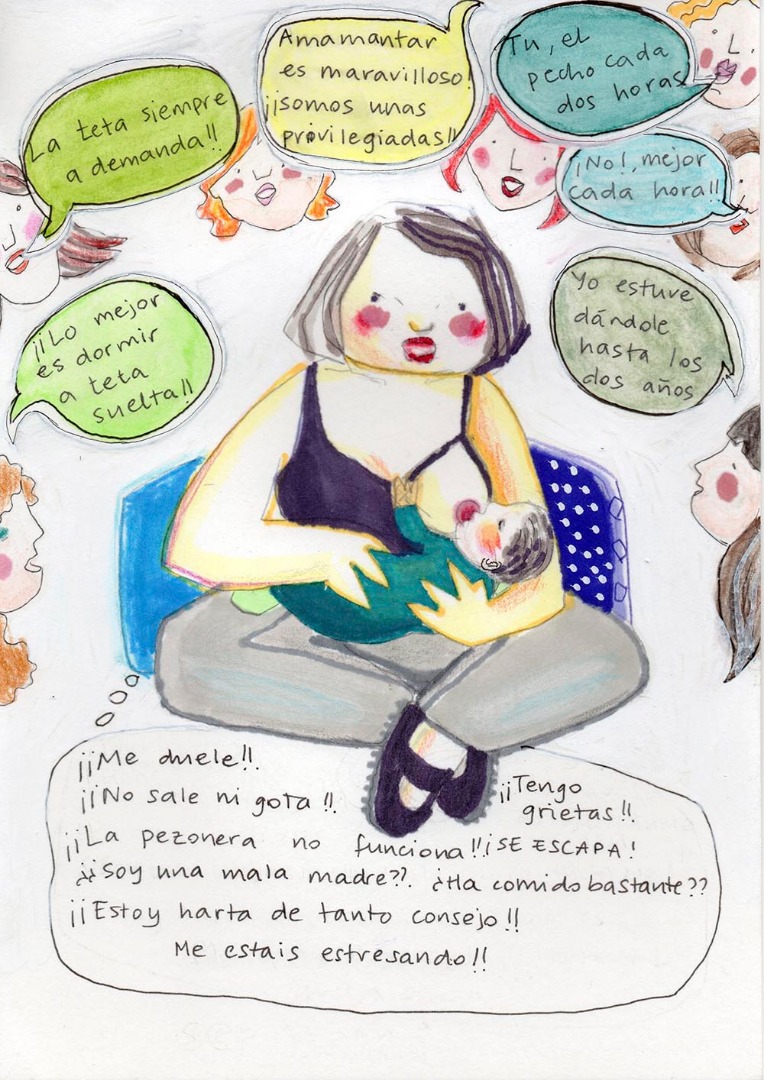 La teta siempre
a demanda!!
Amamantar
es maravilloso!
¡¡somos unas
privilegiadas!!
Tu, el
pecho cada
dos horas
¡No!, mejor
cada hora!!
¡¡Lo mejor
es dormir
a teta
suelta!!
Yo estuve
dándole
hasta los
dos años
¡¡Me duele!!
¡¡No sale ni gota!!
¡¡Tengo
grietas!!
¡¡La pezonera no funciona!! ¡SE ESCAPA!
¿¿Soy una mala madre??. ¿Ha comido bastante??
¡¡Estoy harta de tanto consejo!!
Me estais estresando!!